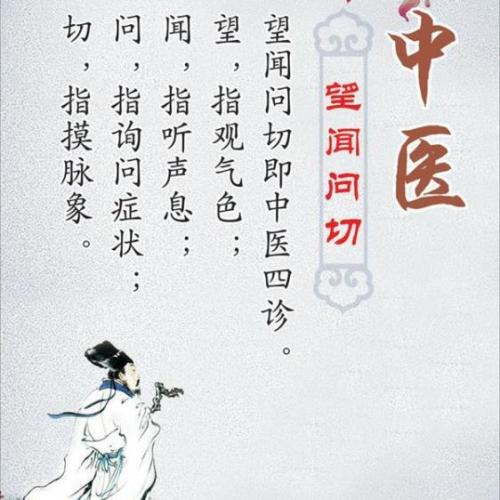 中医
望闻问切
望闻问切即中医四诊。
望，指观气色；
闻，指听声息；
问，指询问症状；
切，指摸脉象。